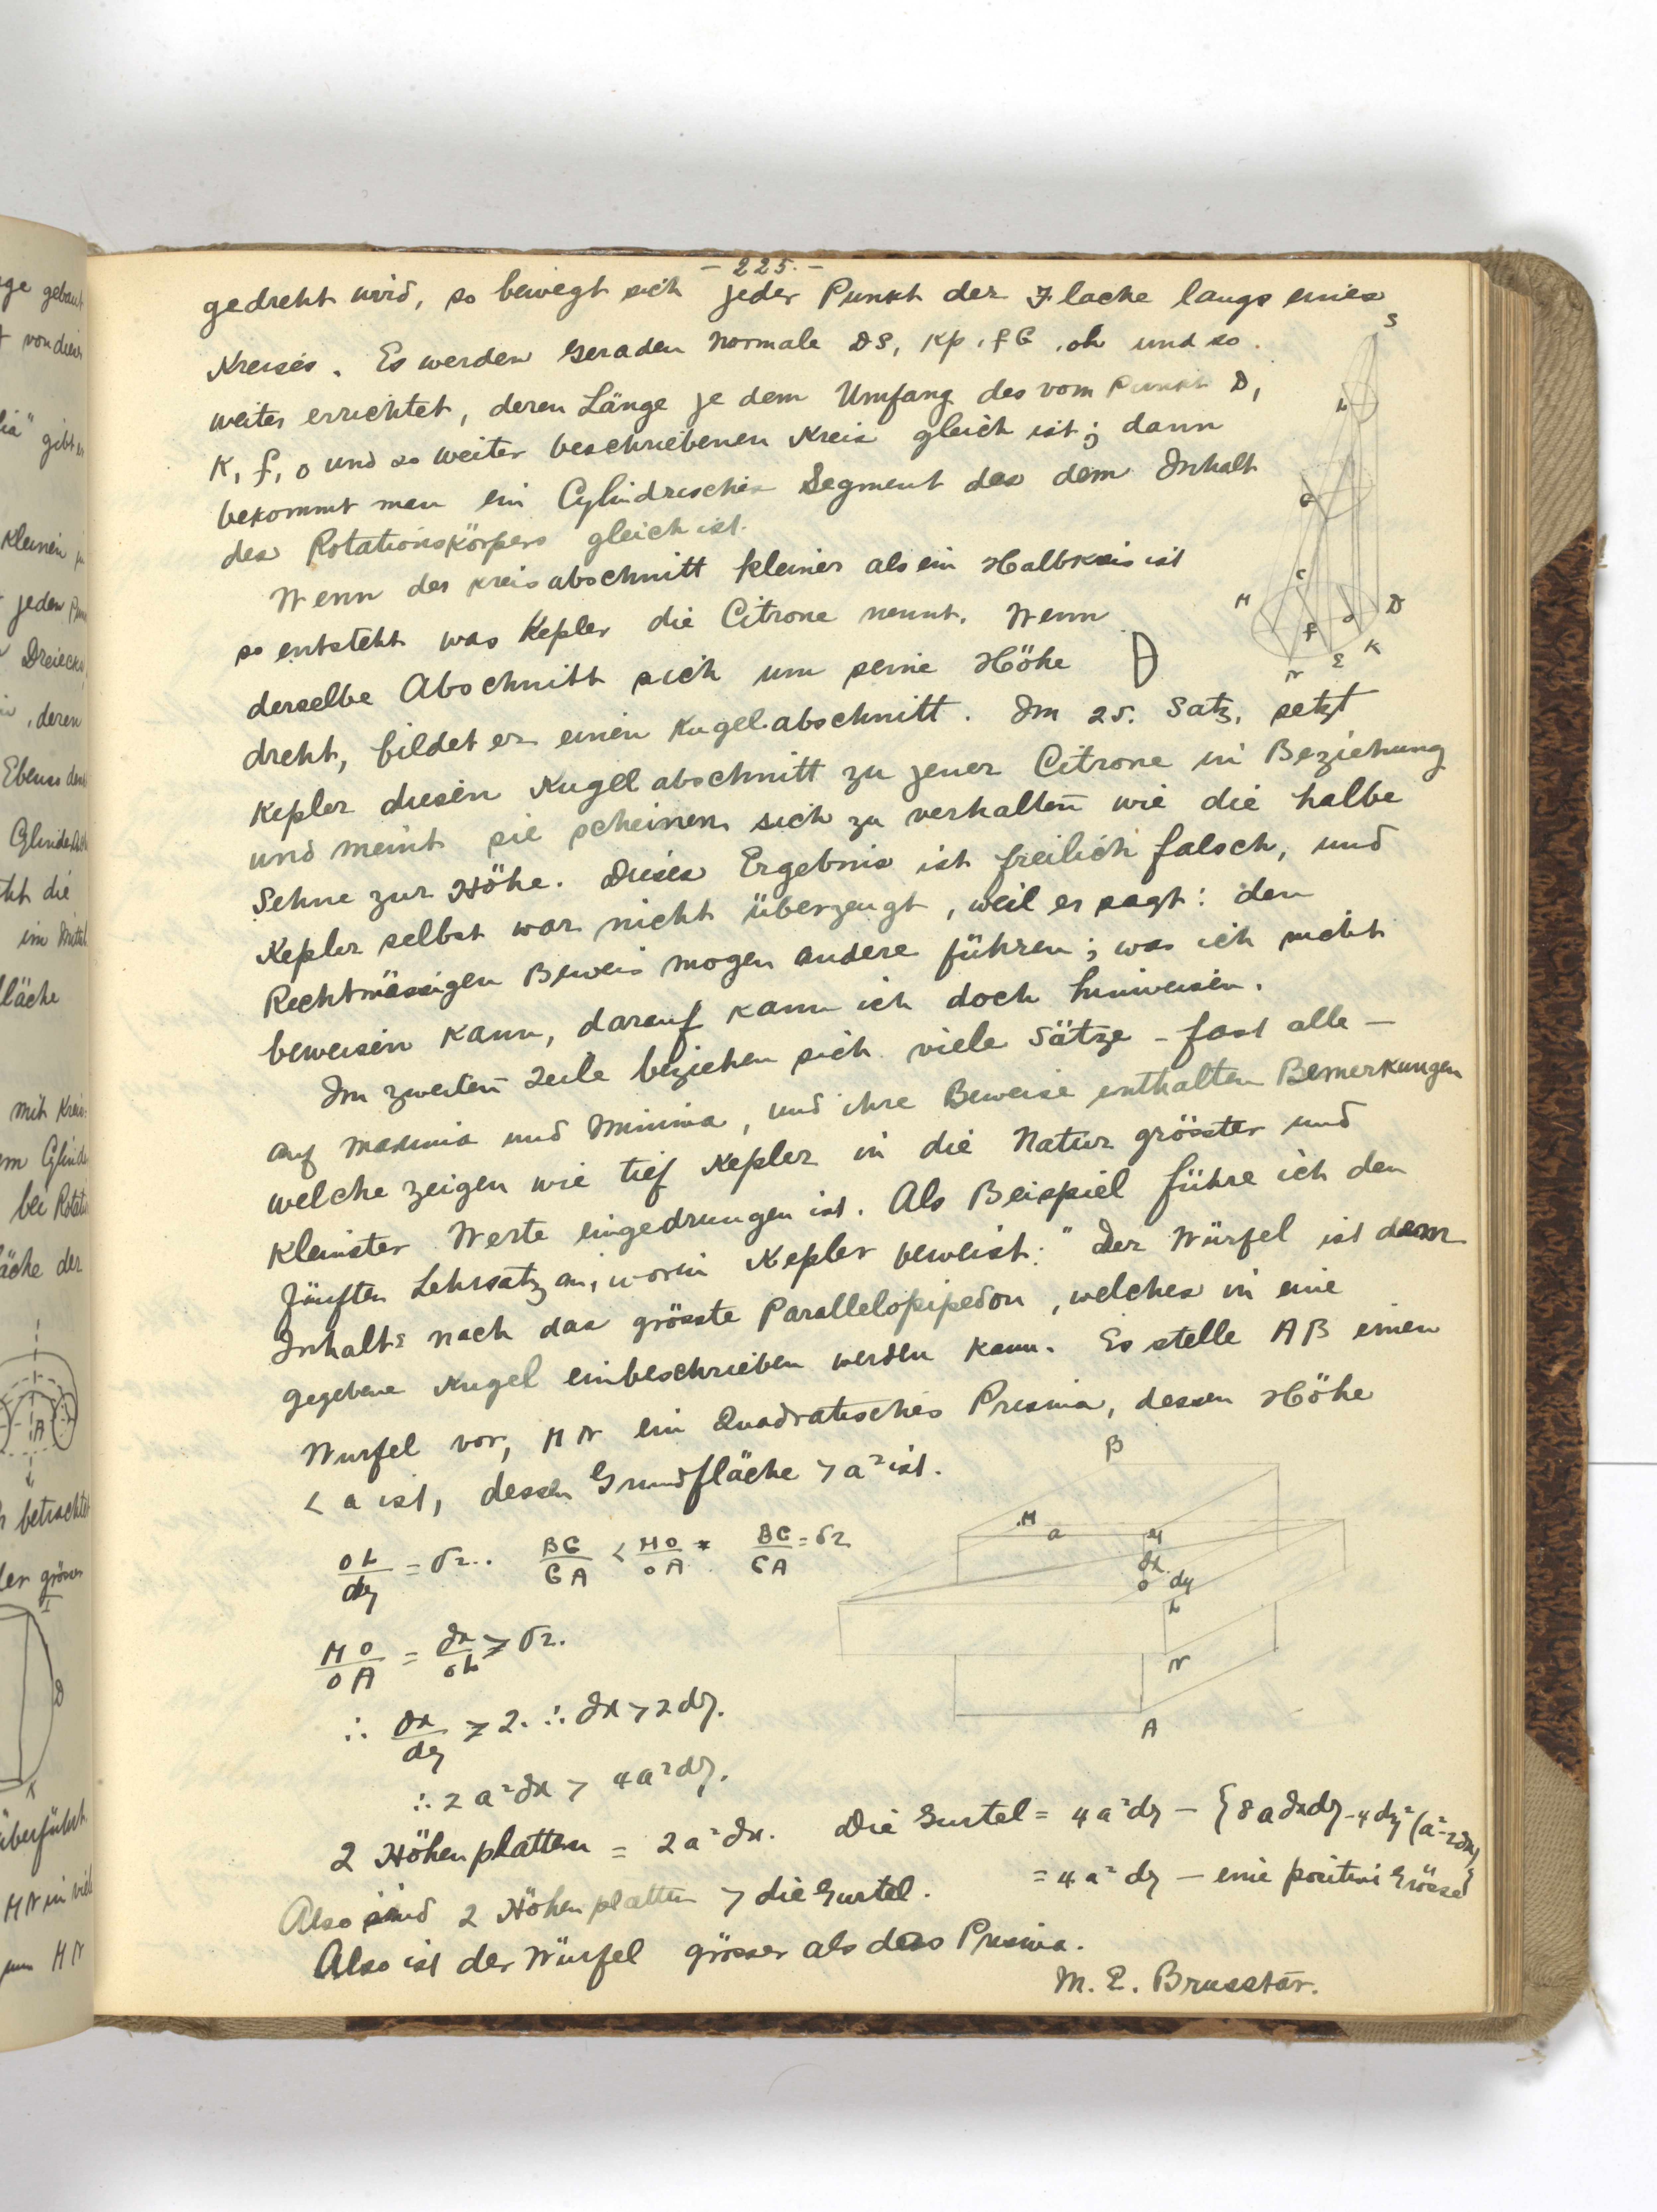 - 225. -
gedreht wird, so bewegt sich jeder Punkt der Flache langs eines
Kreises. Es werden Geraden Normale DS, Kp, fG, oh und so
weiter errichtet, deren Länge je dem Umfang des vom Punkt D,
K, f, o und so weiter beschriebenen Kreis gleich ist; dann
bekommt man ein Cylindrisches Segment das dem Inhalt
des Rotationskörpers gleich ist.
Wenn der Kreisabschnitt kleiner als ein Halbkreis ist
so entsteht was Kepler die Citrone nennt. Wenn
derselbe Abschnitt sich um seine Höhe
dreht, bildet er einen Kugelabschnitt. Im 25. Satz, setzt
Kepler diesen Kugelabschnitt zu jener Citrone in Beziehung
und meint sie scheinen sich zu verhalten wie die halbe
Sehne zur Höhe. Dieses Ergebnis ist freilich falsch, und
Kepler selbst war nicht überzeugt, weil er sagt: den
Rechtmässigen Beweis mogen andere führen; was ich nicht
beweisen kann, darauf kann ich doch hinweisen.
Im zweiten Teile beziehen sich viele Sätze - fast alle -
auf Maxima und Minima, und ihre Beweise enthalten Bemerkungen
welche zeigen wie tief Kepler in die Natur grösster und
kleinster Werte eingedrungen ist. Als Beispiel führe ich den
fünften Lehrsatz an, worin Kepler beweist: "Der Würfel ist dem
Inhalte nach das grösste Parallelopipedon, welches in eine
gegebene Kugel einbeschrieben werden kann. Es stelle AB einen
Wurfel vor, MN ein Quadratisches Prisma, dessen Höhe
< a ist, dessen Grundfläche > a² ist.
OL/dy = √2.. BG/GA < MO/OA * BG/GA = √2
MO/OA = ∂x/OL > √2.
∴ ∂x/dy > 2. ∴ ∂x > 2dy.
∴ 2a²∂x > 4a²dy.
2 Höhenplatten = 2a²∂x. Die Gurtel = 4a²dy - {8a∂xdy - 4dy²(a - 2∂x)}
Also sind 2 Höhenplatten > die Gurtel. = 4a²dy - eine positive Grösse
Also ist der Würfel grösser als das Prisma.
M. E. Brusstar.
S
L
G
C
M
D
f
K
E
N
B
M
a
∂x
O
dy
L
N
A